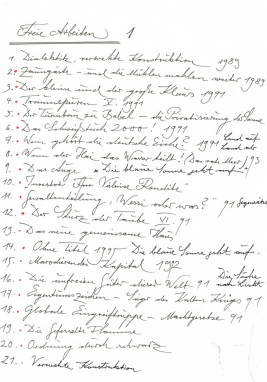 Freie Arbeiten 1
1. Dialektik, verrückte Konstruktion 1989
2. Zaungäste - und die Mühlen mahlen weiter 1989
3. Der kleine und der große Klaus 1991
4. Traumspuren V. 1991
5. Der Turmbau zu Babel - die Privatisierung der Sonne
6. Das 2000! 1991
7. Wem gehört die deutsche Eiche? 1991
8. Wenn der Hai das Wasser hält! (Das rote Meer) 93
9. Das Auge "Die blaue Sonne geht auf"
10. Inventor für Rendite"
11. Gewaltenteilung, Wessi oder was? " 91
12. Der Sturz der Taube VI. 91
13. Das neue gemeinsame Haus
14. Ohne Titel 1995 - Die blaue Sonne geht auf.
15. Marodierendes Kapital 1992
16. Die unfreien Güter dieser Welt 91
17. Eigentumszeichen - Sage des Kalten Kriegs 91
18. Globale Eingreiftruppe - Machtgesetze 91
19. Die Flamme
20. Ordnung durch schwarz
21. Verrückte Konstruktion